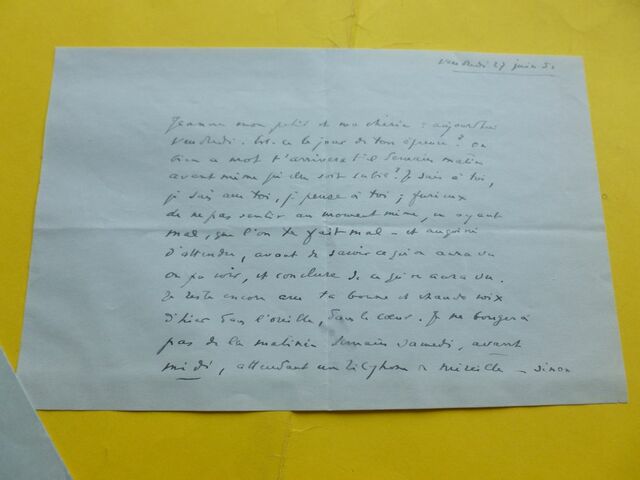 Vendredi 27 juin 5
Jeanne mon petit et ma chérie : aujourd'hui
vendredi. Est-ce le jour de ton épreuve? Ou
bien ce mot t'arrivera t'il demain matin
avant même qu'elle soit subie? Je suis à toi,
je suis avec toi, je pense à toi ; furieux
de ne pas sentir au moment même, en ayant
mal, que l'on te fait mal - et angoissé
d'attendre, avant de savoir ce qu'on aura vu
ou pu voir, et conclure de ce qu'on aura vu.
Je reste encore avec ta bonne et chaude voix
d'hier dans l'oreille, dans le cœur. Je ne bougerai
pas de la matinée demain samedi, avant
midi, attendant un téléphone de Mireille - sinon